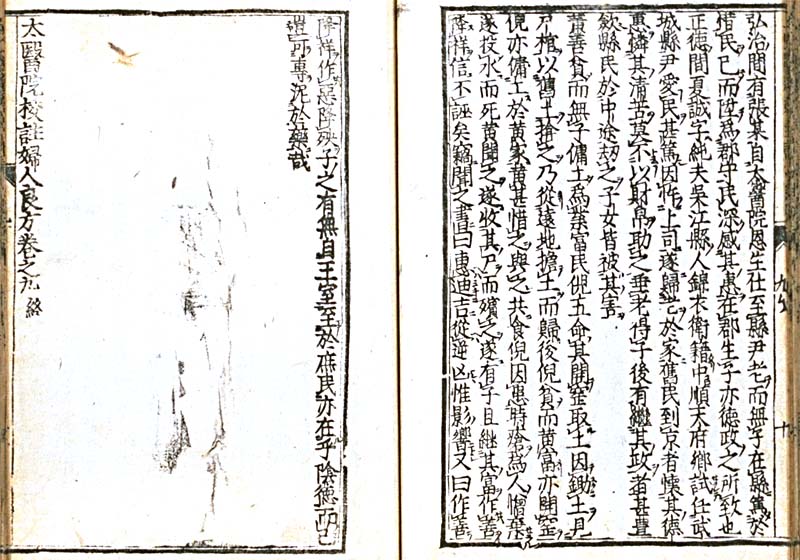 弘治間有張某自太醫院恩生仕至縣尹老而無子在縣篤於
惜民已而陞爲郡守民深感其惠在郡生子亦德政之所致也
正德間夏誠字純夫吳江縣人錦衣衛籍中順天府鄉試任武
城縣尹愛民甚篤因忤上司遂歸老於家舊民到京者懷其德
惠憐其清苦莫不以財帛助之垂老得子後有繼其政者甚
歛縣民於中途刼之子女皆被其害
黄善貧而無子傭土爲業富民倪五命其開窑取土因鋤土見
棺以舊土掩之乃從遠地擔土而歸後倪貧而黄富亦開窑
倪亦傭工於黄家黄甚惜之與之共食倪因患時瘡爲人憎棄
遂投水而死黄聞之遂收其尸而殯之遂有子且繼其富作善
降祥信不誣矣竊聞之書曰惠迪吉從逆凶惟影響又曰作善
降祥作惡降殃子之有無自王室至於庶民亦在乎陰德而已
豈可專泥於藥哉
太醫院校註婦人良方卷之九 終